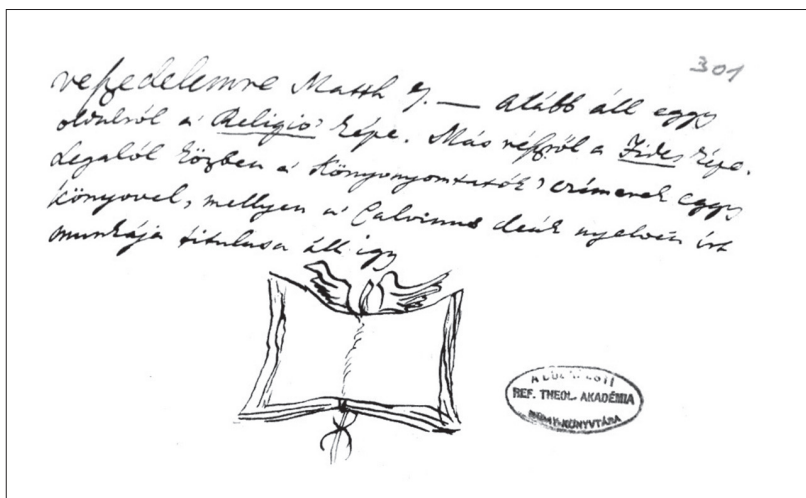 301
veszedelemre Matth 7. — Alább áll eggy
oldalról a' Religio' képe. Más részről a Fides képe.
Legalól közben a' Könyvnyomtatók' czímerek eggy
könyvvel, mellyen a' Calvinus deák nyelven írt
munkája titulusa áll így
A BUDAPESTI
REF. THEOL. AKADÉMIA
KÖNYVTÁRA